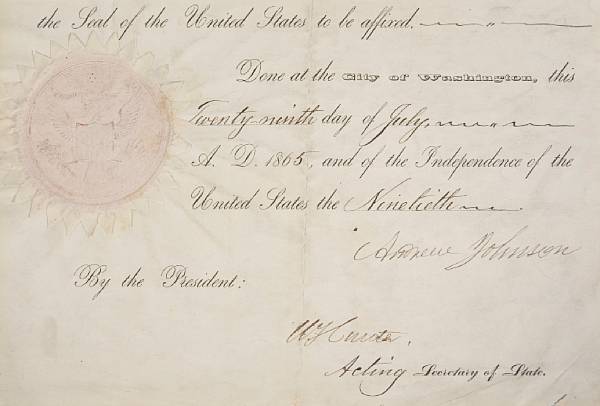 the Seal of the United States to be affixed.
Done at the City of Washington, this
Twenty-ninth day of July,
A. D. 1865, and of the Independence of the
United States the Ninetieth
Andrew Johnson
By the President:
W Hunter.
Acting Secretary of State.